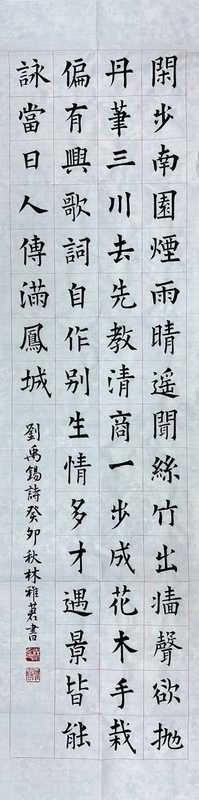 閑步南園煙雨晴遥聞絲竹出牆聲欲抛
丹筆三川去先教清商一步成花木手栽
偏有興歌詞自作别生情多才遇景皆能
詠當日人傳滿鳳城
劉禹錫詩癸卯秋林雅茗書